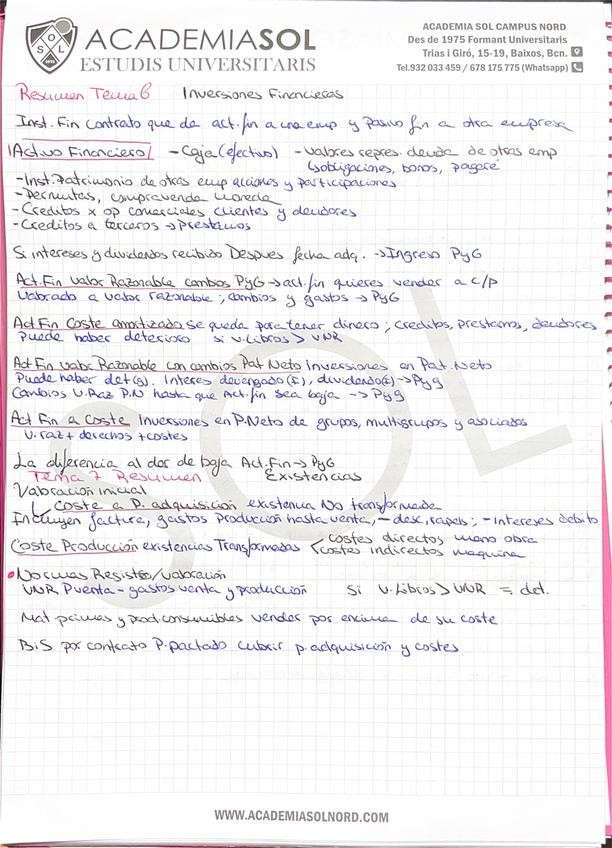 ACADEMIASOL
ESTUDIS UNIVERSITARIS
SOL
ACADEMIA SOL CAMPUS NORD
Des de 1975 Formant Universitaris
Trias i Giró, 15-19, Baixos, Bcn.
Tel.932 033 459 / 678 175 775 (Whatsapp)
Resumen Tema 6 Inversiones Financieras
Inst. Fin contrato que da act. fin a una emp y Pasivo fin a otra empresa
Activo Financiero - Caja (efectivo) - Valores repres. deuda de otras emp
obligaciones, bonos, pagaré
- Inst. Patrimonio de otras emp acciones y participaciones
- Permutas, compraventa moneda
- Creditos x op comerciales clientes y deudores
- Creditos a terceros → Prestamos
Si intereses y dividendos recibido Despues fecha adq. → Ingreso PyG
Act. Fin Valor Razonable cambios PyG → act. fin quieres vender a c/p
Valorado a valor razonable; cambios y gastos → PyG
Act Fin Coste amortizado se queda para tener dinero; creditos, prestamos, deudores
Puede haber deterioro si V. Libros > VNR
Act Fin Valor Razonable con cambios Pat Neto Inversiones en Pat. Neto
Puede haber det(g). Interes devengado(I), dividendo(I) → Pyg
Cambios V. Raz P.N hasta que Act. fin sea baja → Pyg
Act Fin a Coste Inversiones en P.Neto de grupos, multigrupos y asociados
V. raz + derechos + costes
La diferencia al dar de baja Act. Fin → PyG
Tema 7 Resumen Existencias
Valoración inicial
Coste a P. adquisición existencia No transformada
Incluyen factura, gastos Producción hasta venta, - desc, rapels; - Intereses debito
Coste Producción existencias Transformadas costes directos mano obra
costes indirectos maquina
• Normas Registro/valoración
VNR Pventa - gastos venta y producción Si V. Libros > VNR = det.
Mat primas y prod consumibles vender por encima de su coste
B.S por contrato P. pactado cubrir p. adquisición y costes
WWW.ACADEMIASOLNORD.COM